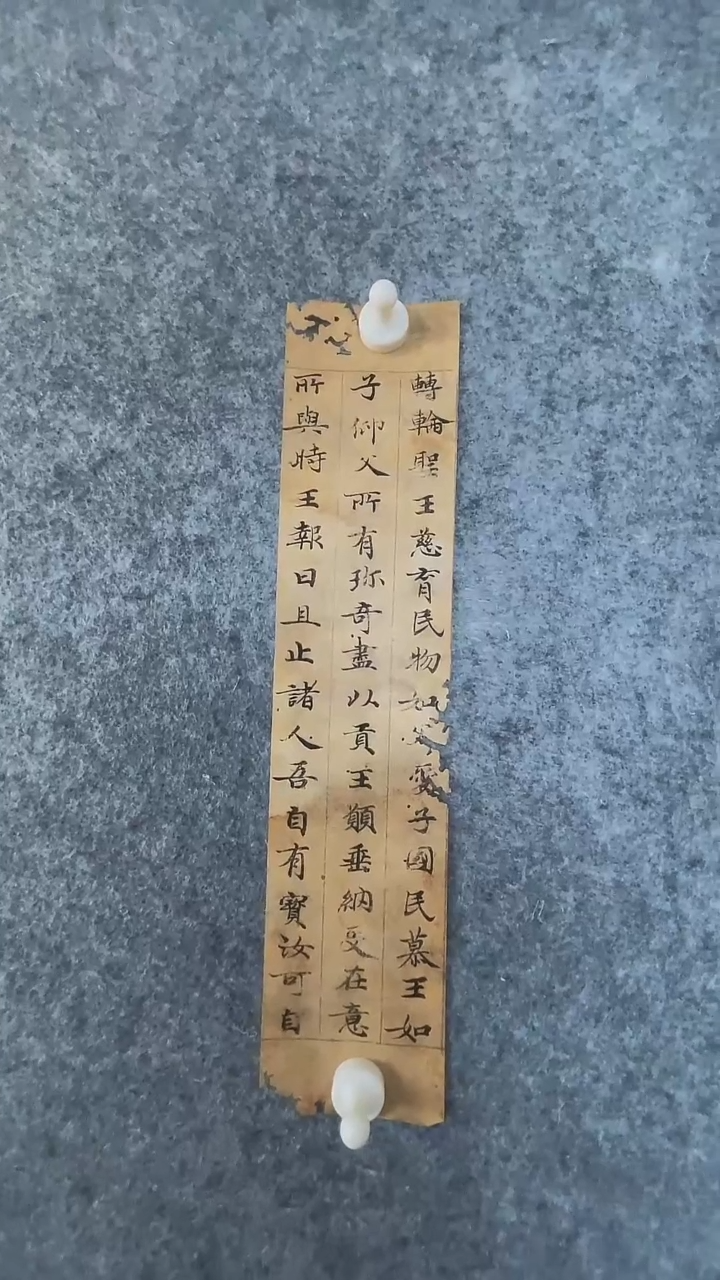 轉輪聖王慈育民物如父愛子國民慕王如
子仰父所有珎奇盡以貢王願垂納受在意
所與時王報曰且止諸人吾自有寳汝可自